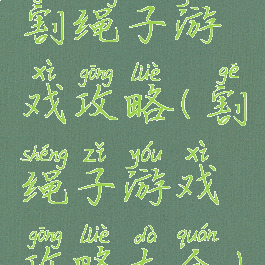 割绳子游
xì gōng lüè gē
戏攻略(割
shéng zǐ yóu xì
绳子游戏
gōng lüè dà quán
攻略大全)